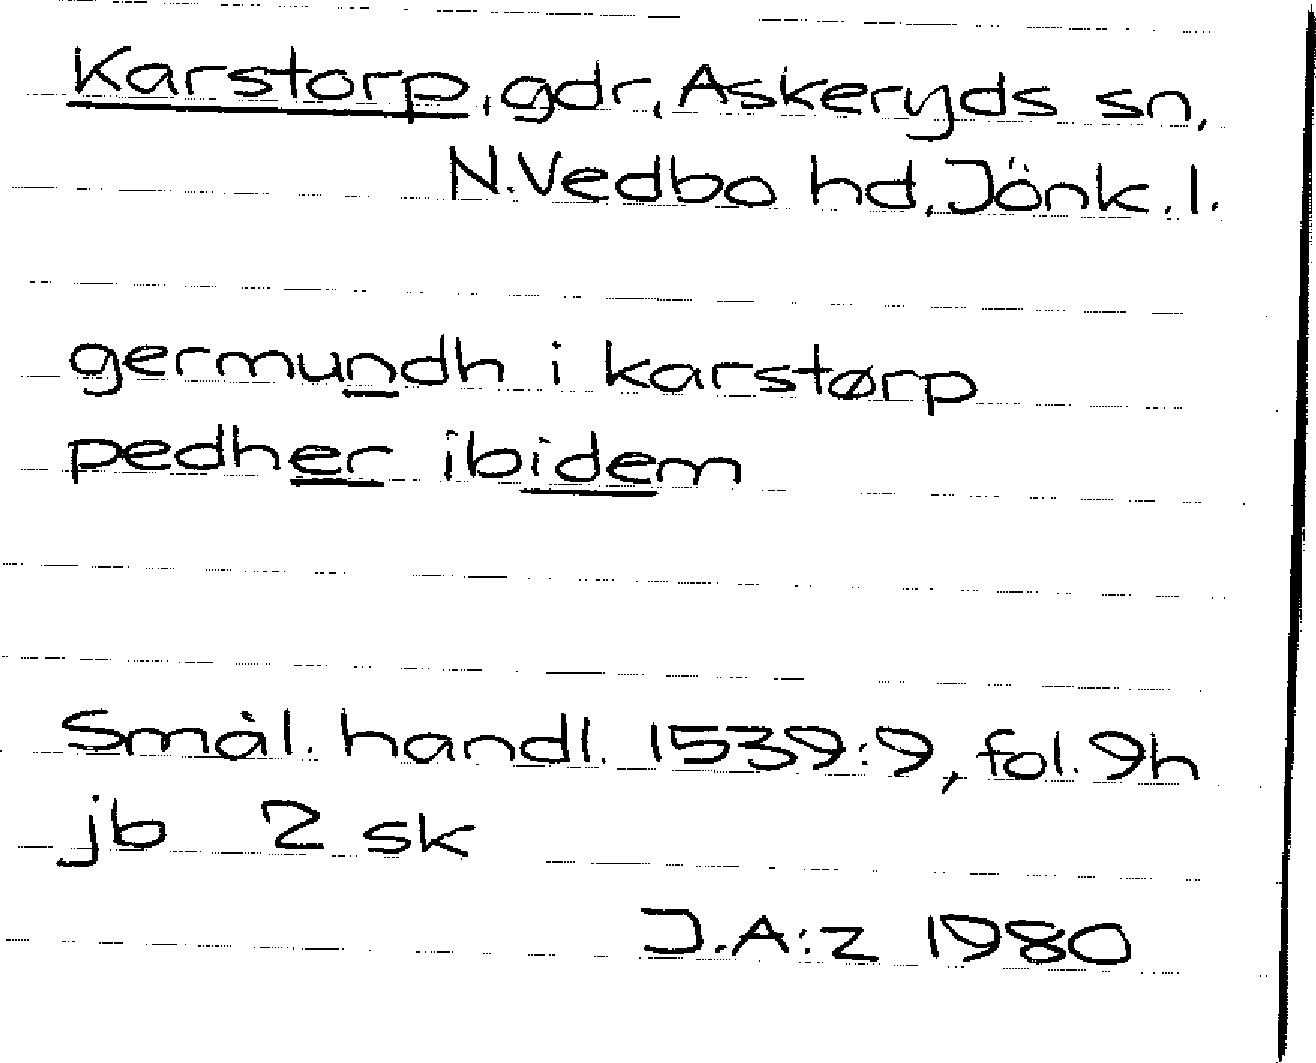 Karstorp, gdr, Askeryds sn,
N. Vedbo hd, Jönk. l.
germundh i karstørp
pedher ibidem
Smål. handl. 1539:9, fol. 9h
jb 2 sk
J.A:z 1980